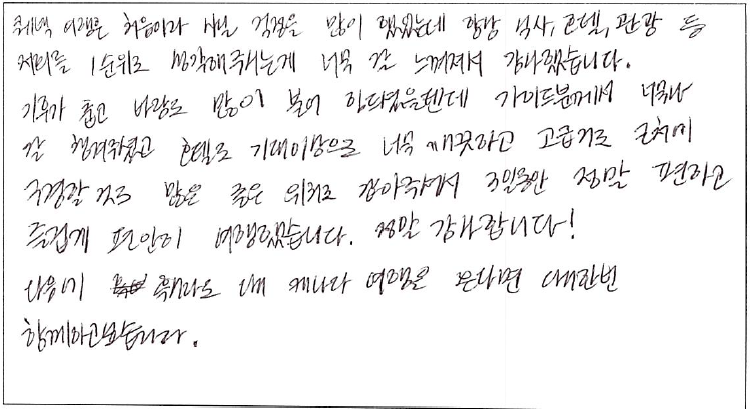 퀘벡 여행은 처음이라 사실 걱정을 많이 했었는데 항상 식사, 호텔, 관광 등
저희를 1순위로 생각해주시는게 너무 잘 느껴져서 감사했습니다.
기후가 춥고 바람도 많이 불어 힘드셨을텐데 가이드분께서 너무나
잘 챙겨주셨고 호텔도 기대이상으로 너무 깨끗하고 고급지고 근처에
구경할 것도 많은 좋은 위치로 잡아주셔서 3일동안 정말 편하고
즐겁게 편안히 여행했습니다. 정말 감사합니다!
다음에 혹시라도 또 캐나다 여행을 온다면 다시한번
함께하고싶습니다.